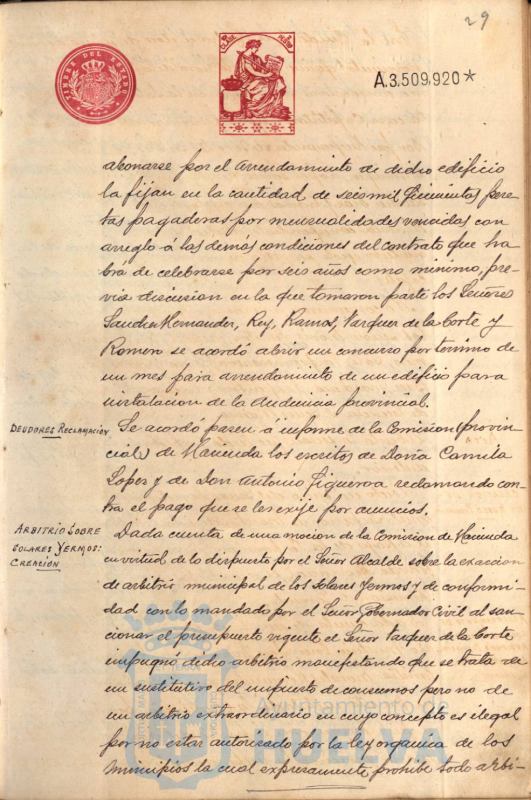 29
TIMBRE DEL ESTADO
A.3.509.920*
abonarse por el arrendamiento de dicho edificio
la fijan en la cantidad de seis mil quinientas pese
tas pagaderas por mensualidades vencidas con
arreglo á las demás condiciones del contrato que ha
brá de celebrarse por seis años como minimo, pre
via discusion en la que tomaron parte los Señores
Sanchez Hernandez, Rey, Ramos, Vazquez de la Corte y
Romero se acordó abrir un concurso por termino de
un mes para arrendamiento de un edificio para
instalacion de la Audiencia provincial.
DEUDORES RECLAMACION
Se acordó pasen á informe de la Comision (provin
cial) de Hacienda los escritos de Doña Camila
Lopez y de Don Antonio Figueroa reclamando con
tra el pago que se les exije por anuncios.
ARBITRIO SOBRE
SOLARES YERMOS:
CREACION
Dada cuenta de una mocion de la Comision de Hacienda
en virtud de lo dispuesto por el Señor Alcalde sobre la exaccion
de arbitrio municipal de los Solares Yermos y de conformi
dad con lo mandado por el Señor Gobernador Civil al san
cionar el presupuesto vigente el Señor Vazquez de la Corte
impugnó dicho arbitrio manifestando que se trata de
un sustitutivo del impuesto de consumos pero no de
un arbitrio extraordinario en cuyo concepto es ilegal
por no estar autorizado por la ley organica de los
Municipios la cual expresamente prohibe todo arbi-
Ayuntamiento de
HUELVA